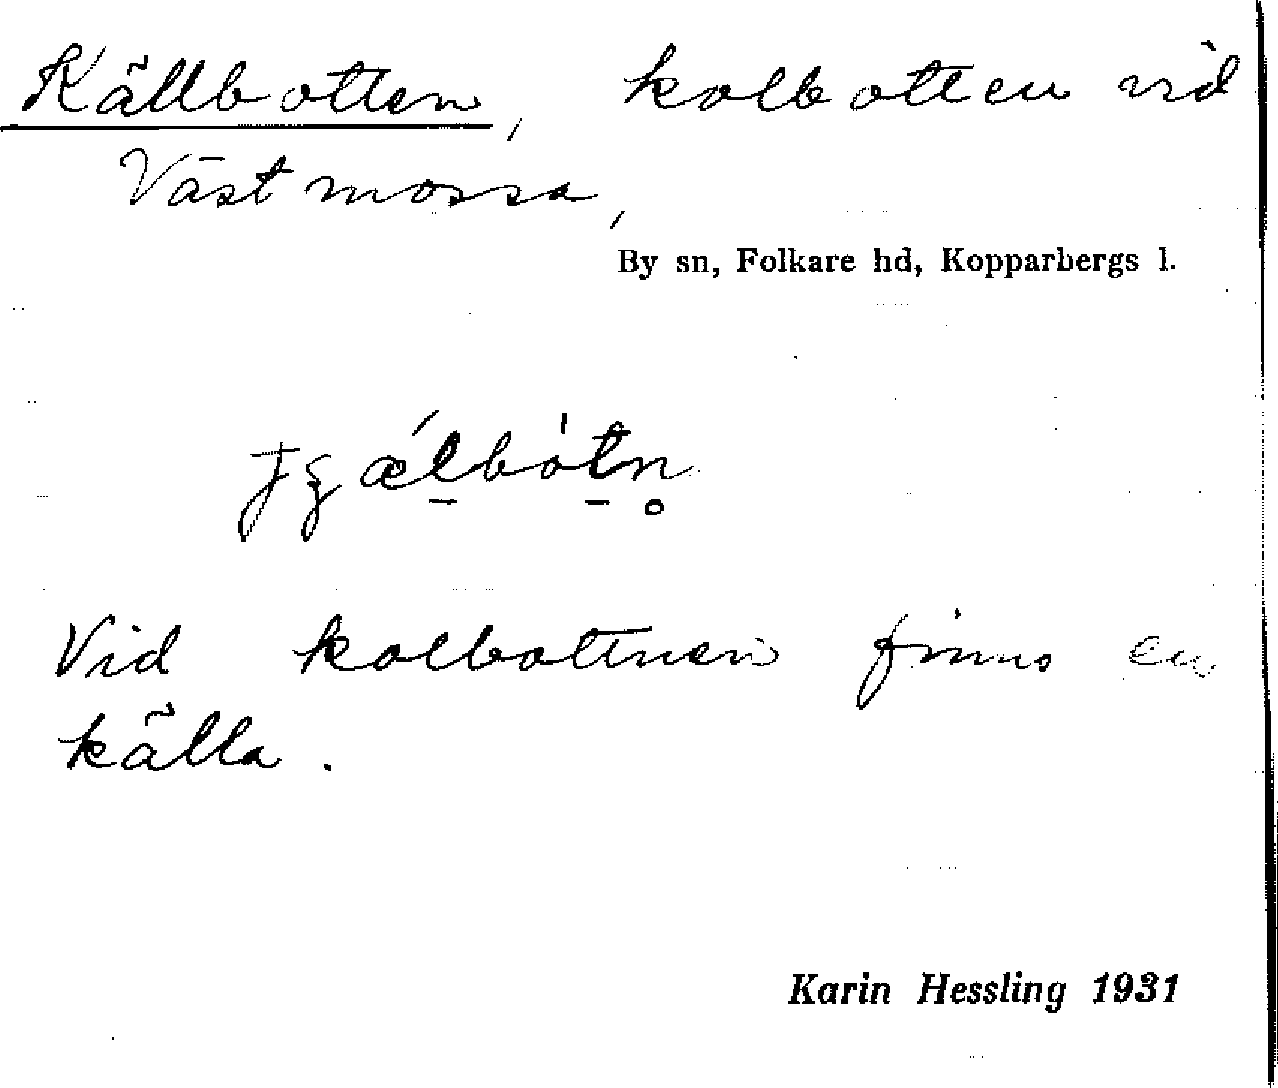 Källbotten, kolbotten vid
Västmossa,
By sn, Folkare hd, Kopparbergs l.
Vid kolbottnen finns en
källa.
Karin Hessling 1931